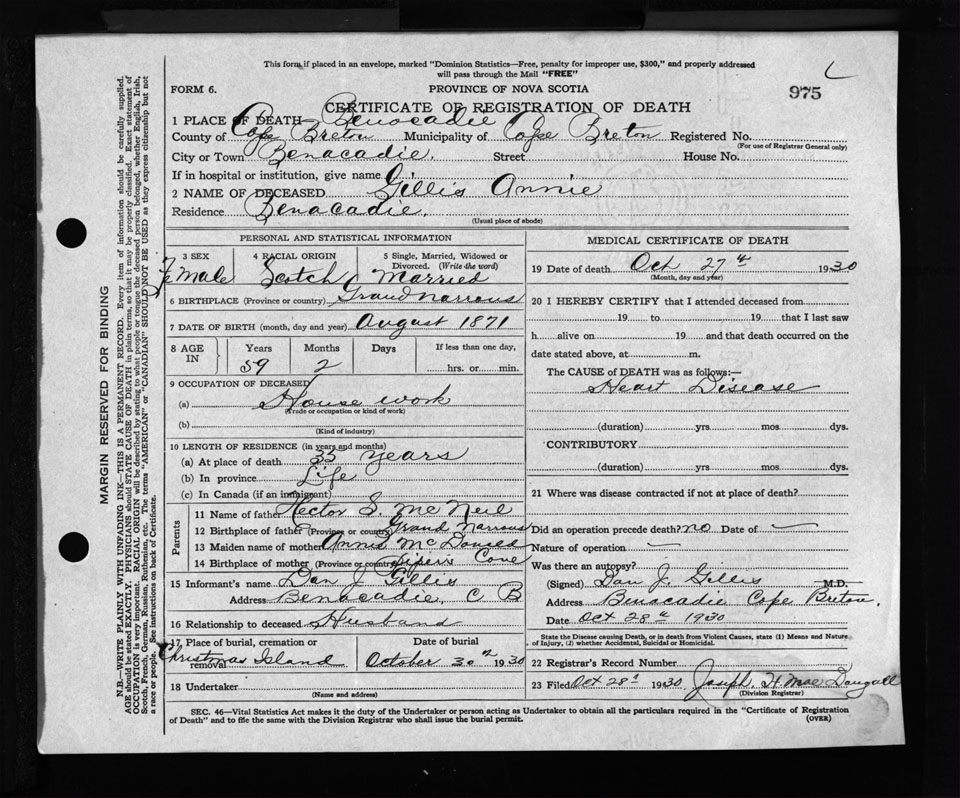 This form if placed in an envelope, marked "Dominion Statistics—Free, penalty for improper use, $300," and properly addressed
will pass through the Mail "FREE"
FORM 6. PROVINCE OF NOVA SCOTIA 975
CERTIFICATE OF REGISTRATION OF DEATH
1 PLACE OF DEATH Benacadie
County of Cape Breton Municipality of Cape Breton Registered No.
(For use of Registrar General only)
City or Town Benacadie. Street House No.
If in hospital or institution, give name
2 NAME OF DECEASED Gillis Annie
Residence Benacadie.
(Usual place of abode)
PERSONAL AND STATISTICAL INFORMATION
3 SEX 4 RACIAL ORIGIN 5 Single, Married, Widowed or
Divorced. (Write the word)
Female Scotch Married
6 BIRTHPLACE (Province or country) Grand Narrows
7 DATE OF BIRTH (month, day and year) August 1871
8 AGE IN Years Months Days If less than one day,
59 2 hrs. or min.
9 OCCUPATION OF DECEASED
(a) House work
(Trade or occupation or kind of work)
(b)
(Kind of industry)
10 LENGTH OF RESIDENCE (in years and months)
(a) At place of death 35 years
(b) In province Life
(c) In Canada (if an immigrant)
Parents
11 Name of father Hector S. McNeil
12 Birthplace of father (Province or country) Grand Narrows
13 Maiden name of mother Annie McDonald
14 Birthplace of mother (Province or country) Pipers Cove
15 Informant's name Dan J Gillis
Address Benacadie, C B
16 Relationship to deceased Husband
17 Place of burial, cremation or removal Date of burial
Christmas Island October 30th 1930
18 Undertaker
(Name and address)
MEDICAL CERTIFICATE OF DEATH
19 Date of death Oct 27th 1930
(Month, day and year)
20 I HEREBY CERTIFY that I attended deceased from
19 to 19 that I last saw
h alive on 19 and that death occurred on the
date stated above, at m.
The CAUSE of DEATH was as follows:—
Heart Disease
(duration) yrs mos dys.
CONTRIBUTORY
(duration) yrs mos dys.
21 Where was disease contracted if not at place of death?
Did an operation precede death? no Date of —
Nature of operation —
Was there an autopsy?
(Signed) Dan J. Gillis M.D.
Address Benacadie Cape Breton.
Date Oct 28th 1930
State the Disease causing Death, or in death from Violent Causes, state (1) Means and Nature
of Injury, (2) whether Accidental, Suicidal or Homicidal.
22 Registrar's Record Number
23 Filed Oct 28th 1930 Joseph H. MacDougall
(Division Registrar)
SEC. 46—Vital Statistics Act makes it the duty of the Undertaker or person acting as Undertaker to obtain all the particulars required in the "Certificate of Registration
of Death" and to file the same with the Division Registrar who shall issue the burial permit. (OVER)
MARGIN RESERVED FOR BINDING
N.B.—WRITE PLAINLY WITH UNFADING INK—THIS IS A PERMANENT RECORD. Every item of information should be carefully supplied.
AGE should be stated EXACTLY. PHYSICIANS should STATE CAUSE OF DEATH in plain terms, so that it may be properly classified. Exact statement of
OCCUPATION is very important. RACIAL ORIGIN will be described by stating to what people or tongue the deceased person belonged, whether English, Irish,
Scotch, French, German, Russian, Ruthenian, etc. The terms "AMERICAN" or "CANADIAN" SHOULD NOT BE USED as they express citizenship but not
a race or people. See instructions on back of Certificate.